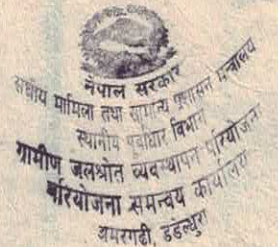 नेपाल सरकार
संघीय मामिला तथा सामान्य प्रशासन मन्त्रालय
स्थानीय पूर्वाधार विभाग
ग्रामीण जलश्रोत व्यवस्थापन परियोजना
परियोजना समन्वय कार्यालय
अमरगढी, डडेल्धुरा